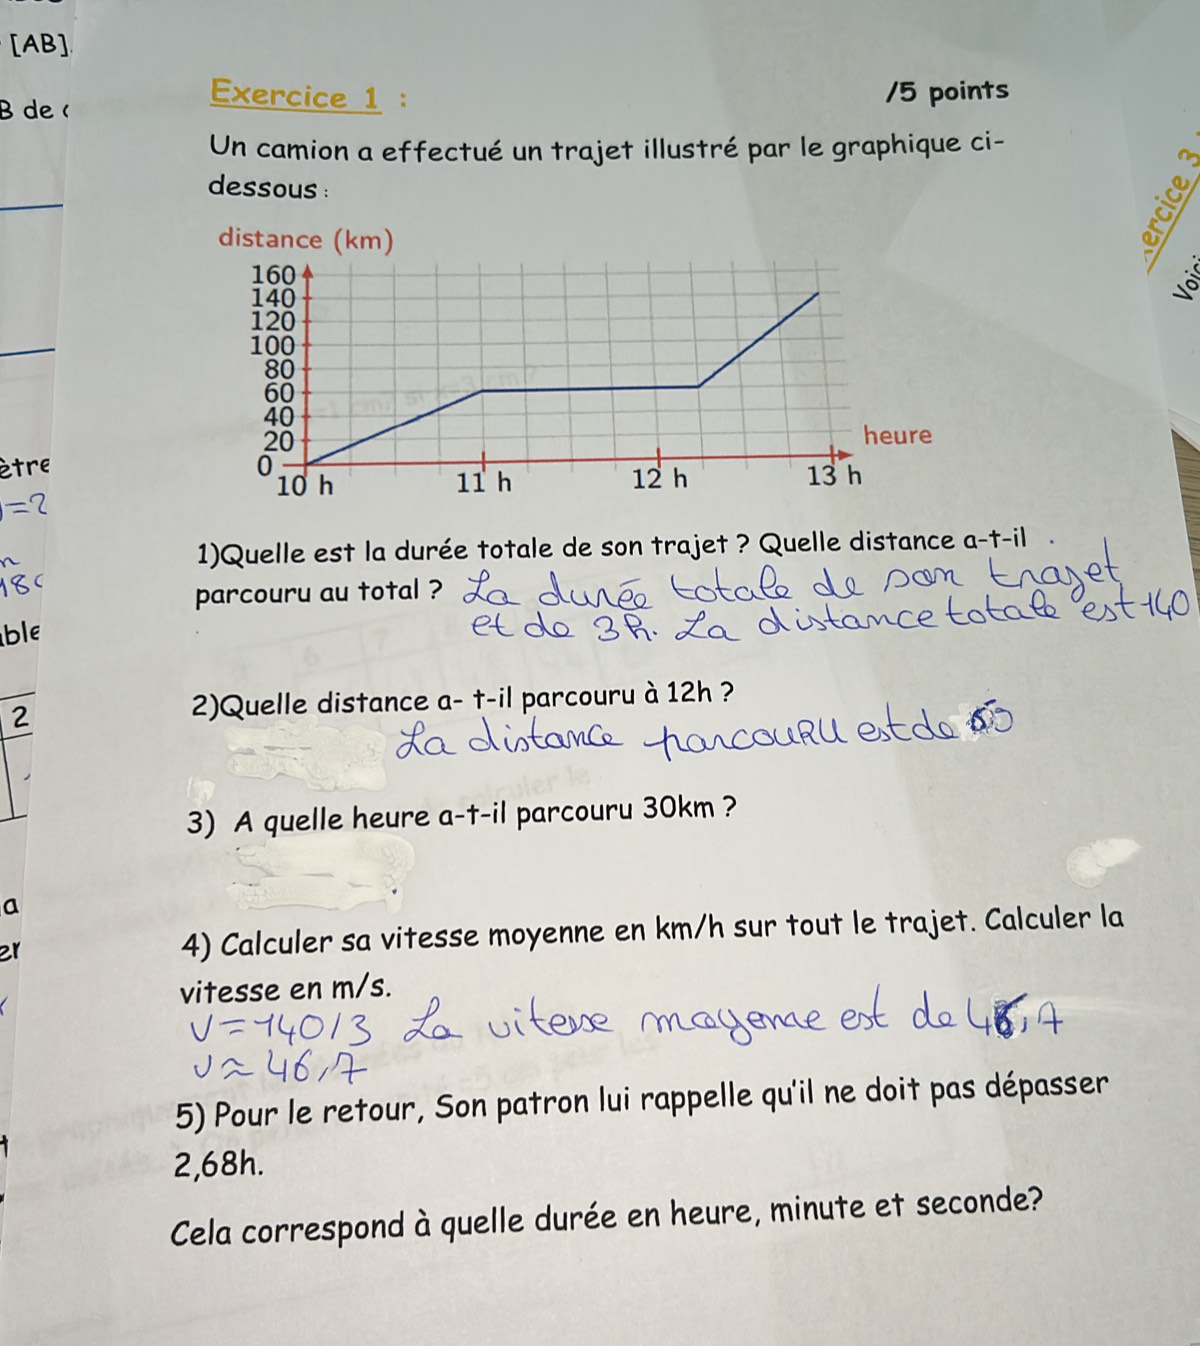 [AB].
B de
Exercice 1 :
/5 points
Un camion a effectué un trajet illustré par le graphique ci-
dessous :
ercice 3
Voici
distance (km)
160
140
120
100
80
60
40
20
0
heure
10 h 11 h 12 h 13 h
être
=2
180
ble
2
a
er
1)Quelle est la durée totale de son trajet ? Quelle distance a-t-il
parcouru au total ? La durée totale de son trajet
et de 3h. La distance totale est 140
2)Quelle distance a- t-il parcouru à 12h ?
La distance parcouru est de
3) A quelle heure a-t-il parcouru 30km ?
4) Calculer sa vitesse moyenne en km/h sur tout le trajet. Calculer la
vitesse en m/s.
V=140/3 La vitesse moyenne est de 46,7
v≈46,7
5) Pour le retour, Son patron lui rappelle qu'il ne doit pas dépasser
2,68h.
Cela correspond à quelle durée en heure, minute et seconde?